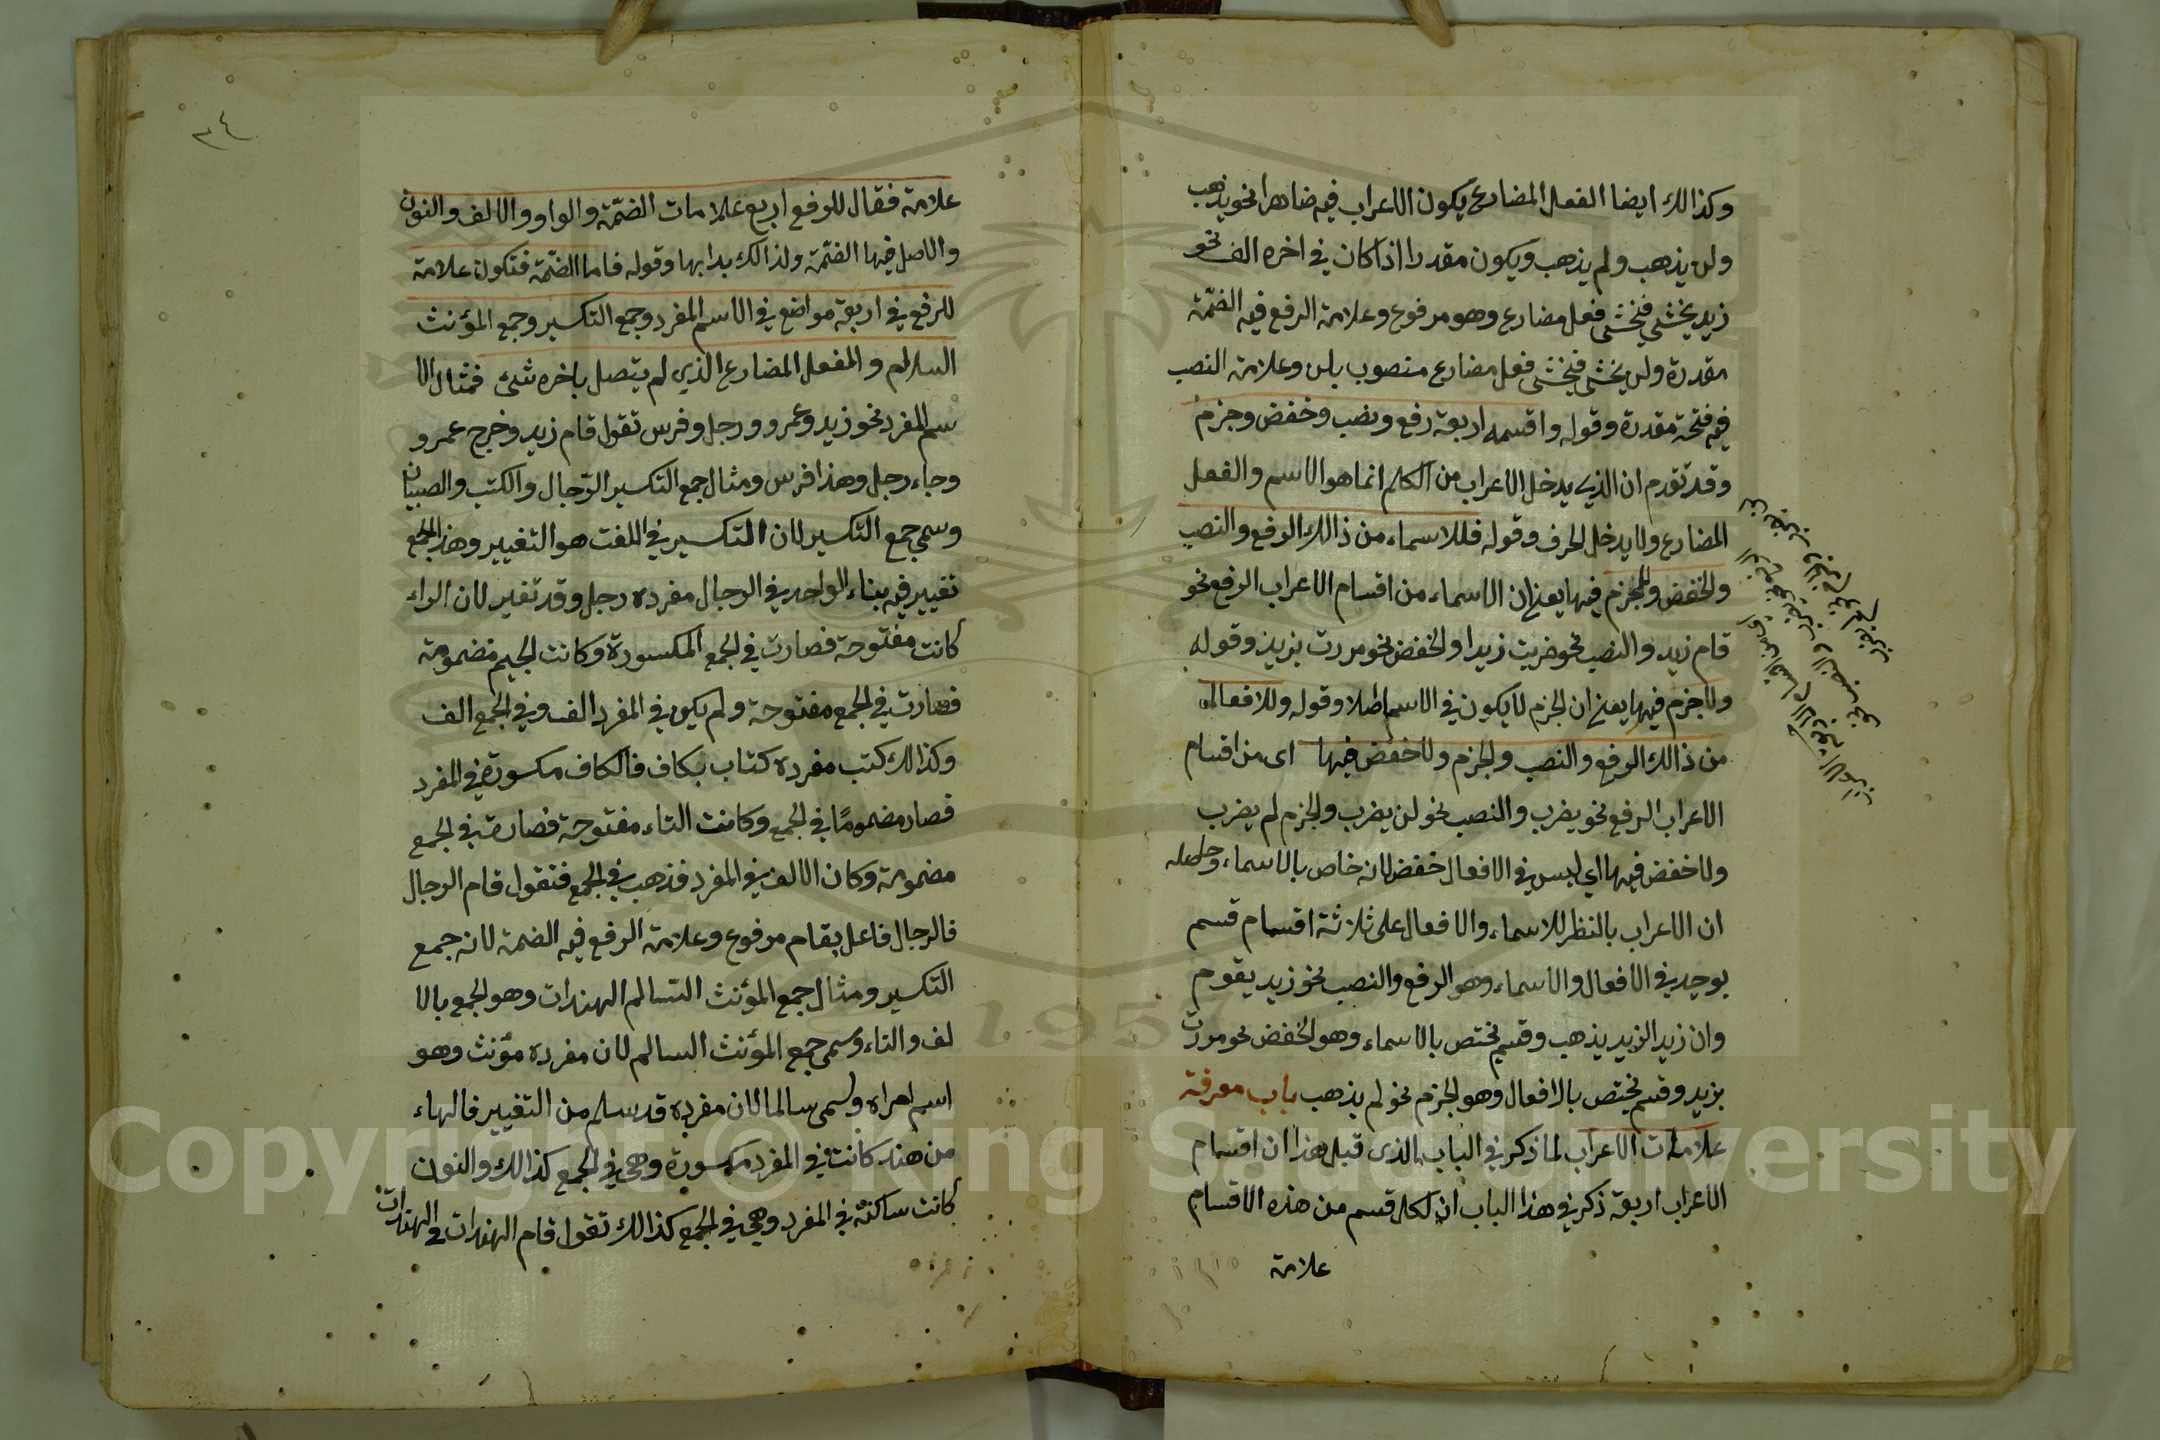 وكذالك ايضا الفعل المضارع يكون الاعراب فيه ضاهرا نحو يذهب
ولن يذهب ولم يذهب ويكون مقدرا اذا كان في اخره الف نحو
زيد يخشى فيخشى فعل مضارع وهو مرفوع وعلامة الرفع فيه الضمّة
مقدرة ولن يخشى فيخشى فعل مضارع منصوب بلن وعلامة النصب
فيه فتحة مقدرة وقوله واقسمه اربعة رفع ونصب وخفض وجزم
وقد تقدم ان الذي يدخل الاعراب من الكلم انما هو الاسم والفعل
المضارع ولا يدخل الحرف وقوله فللاسماء من ذالك الرفع والنصب
والخفض ولا جزم فيها يعني ان الاسماء من اقسام الاعراب الرفع نحو
قام زيد والنصب نحو ضربت زيدا والخفض نحو مررت بزيد وقوله
ولا جزم فيها يعني ان الجزم لا يكون في الاسم اصلا وقوله وللافعال
من ذالك الرفع والنصب والجزم ولا خفض فيها اى من اقسام
الاعراب الرفع نحو يضرب والنصب نحو لن يضرب والجزم لم يضرب
ولا خفض فيها اي ليس في الافعال خفض لانه خاص بالاسماء وحاصله
ان الاعراب بالنظر للاسماء والافعال على ثلاثة اقسام قسم
يوجد في الافعال والاسماء وهو الرفع والنصب نحو زيد يقوم
وان زيدا لن يذهب وقسم يختص بالاسماء وهو الخفض نحو مررت
بزيد وقسم يختص بالافعال وهو الجزم نحو لم يذهب باب معرفة
علامات الاعراب لما ذكر في الباب الذى قبل هذا ان اقسام
الاعراب اربعة ذكر في هذا الباب ان لكل قسم من هذه الاقسام
علامة
٣٤
علامة فقال للرفع اربع علامات الضمّة والواو والالف والنون
والاصل فيها الضمّة ولذالك بدا بها وقوله فاما الضمّة فتكون علامة
للرفع في اربعة مواضع في الاسم المفرد وجمع التكسير وجمع المؤنث
السالم والفعل المضارع الذي لم يتصل باخره شئ فمثال الا
سم المفرد نحو زيد وعمرو ورجل وفرس تقول قام زيد وخرج عمرو
وجاء رجل وهذا فرس ومثال جمع التكسير الرّجال والكتب والصبيان
وسمي جمع التكسير لان التكسير في اللغت هو التغيير وهذا الجمع
تغيير فيه بناء الواحد في الرجال مفرده رجل وقد تغير لان الراء
كانت مفتوحة فصارت في الجمع المكسورة وكانت الجيم مضمومة
فصارت في الجمع مفتوحة ولم يكون في المفرد الف وفي الجمع الف
وكذالك كتب مفرده كتاب بكاف فالكاف مكسورة في المفرد
فصار مضمومًا في الجمع وكانت التاء مفتوحة فصارت في الجمع
مضمومة وكان الالف في المفرد فذهب في الجمع فتقول قام الرجال
فالرجال فاعل بقام مرفوع وعلامة الرفع فيه الضمة لانه جمع
التكسير ومثال جمع المؤنث السّالم الهندات وهو الجمع بالا
لف والتاء وسمى جمع المؤنث السالم لان مفرده مؤنث وهو
اسم امراه ولسمى سالما لان مفرده قد سلم من التغيير فالهاء
من هند كانت في المفرد مكسورة وهي في الجمع كذالك والنون
كانت ساكنة في المفرد وهي في الجمع كذالك تقول قام الهندات فالهندات
Copyright © King Saud University
1957